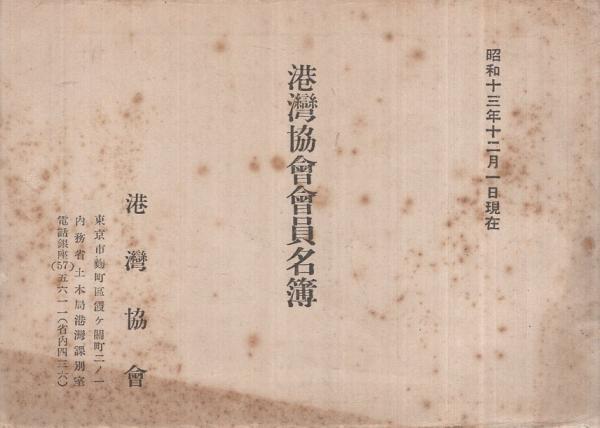 昭和十三年十二月一日現在
港灣協會會員名簿
港灣協會
東京市麴町區霞ケ關町二ノ一
內務省土木局港灣課別室
電話銀座(57)五六一一(省內四三六)